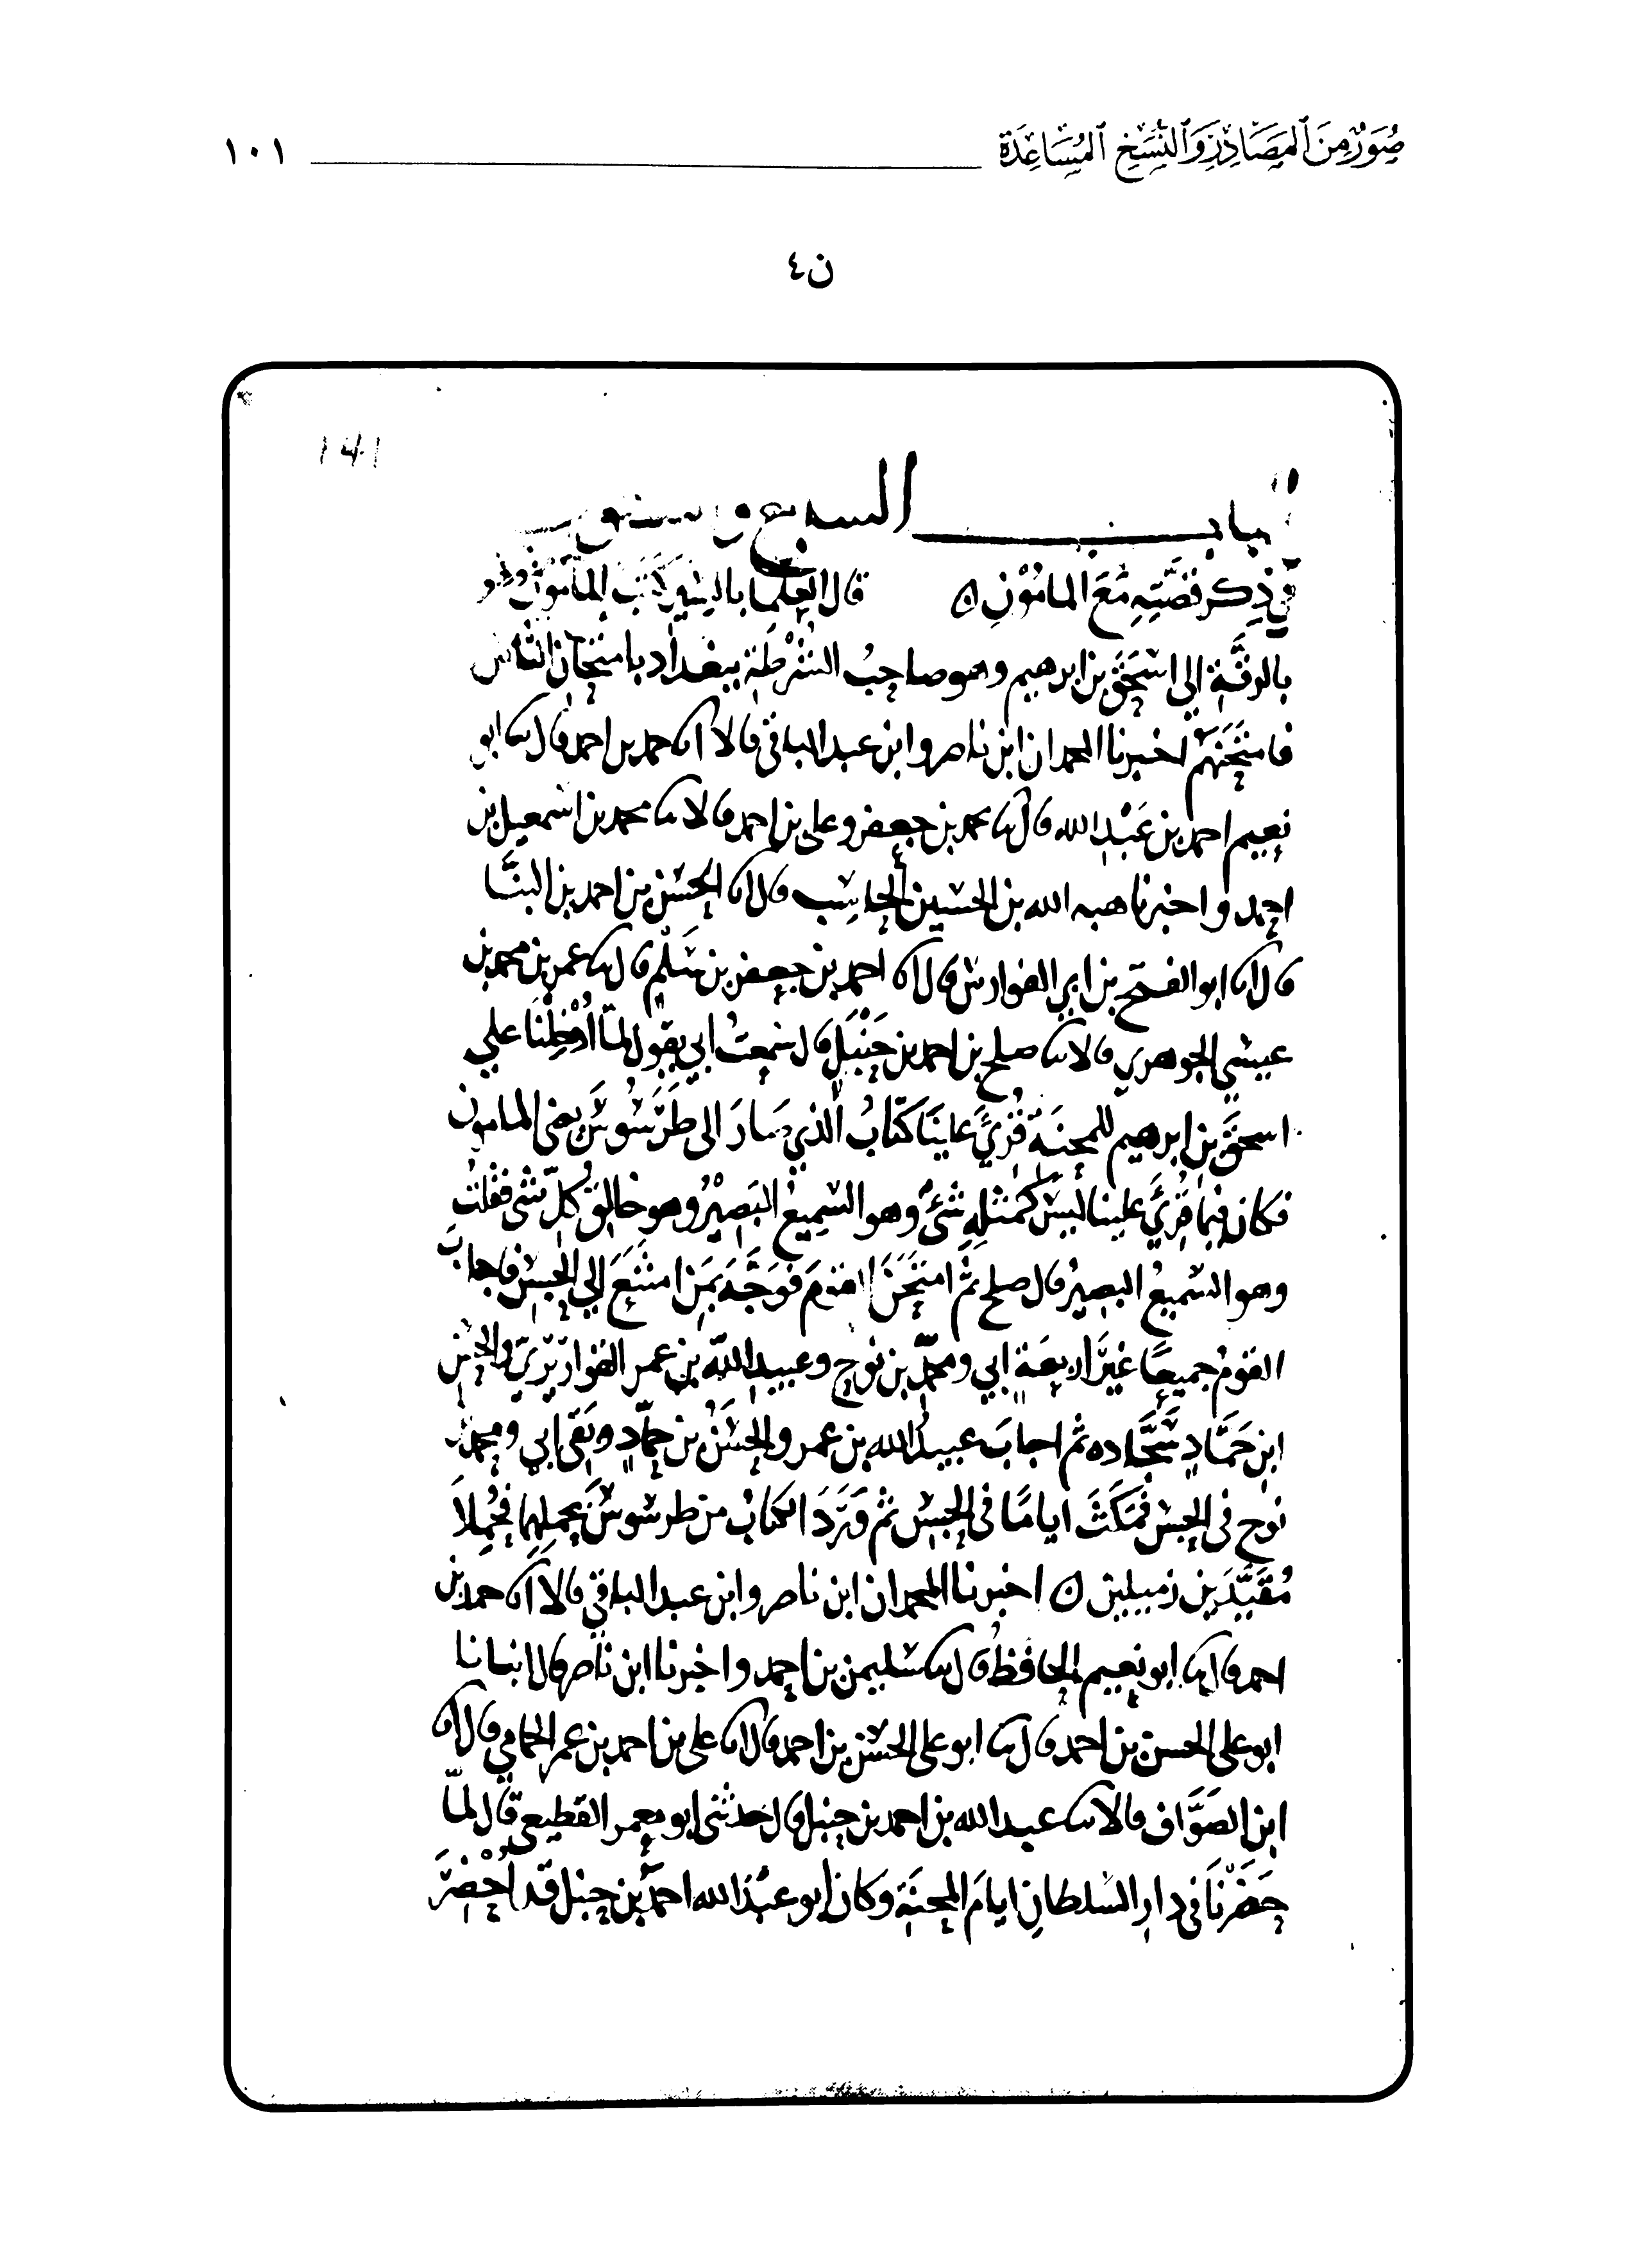 صُوَرٌ مِنَ ٱلمَصَادِرِ وَٱلنُّسَخِ ٱلمُسَاعِدَةِ ١٠١
ن٤
١٤١
الباب السبع وستون
في ذِكر قصَّتِهِ مَعَ المامُوْنِ ه قال العلما بالسير كتب المأمون وهو
بالرقَّةِ الي اسحَقَ بن ابرهيم وهو صاحِبُ الشُرْطَةِ ببغداد بامتحانِ النَّاسِ
فامتَحَنَهُمْ اخبرنا المحمدان ابن ناصر وابن عبد الباقي قالا انا حمد بن احمد قال نا ابو
نعيم احمد بن عَبْدِ الله قال نا محمد بن جعفر وعلي بن احمد قالا نا محمد بن اسمعيل بن
احمد واخبرنا هبه الله بن الحسين الحاسِب قال انا الحسَن بن احمد بن البنَّا
قال انا ابو الفتح بن ابي الفوارس قال انا احمد بن جعفر بن سَلْم قال نا عمر بن محمد بن
عيسي الجوهري قالا نا صلح بن احمد بن حَنْبَل قال سمعتُ ابي يقول لمّا اُدْخِلْنَا علي
اسحقَ بن ابرهيم للمحِنَة قُرِئَ علينَا كتابُ الذي سَارَ الى طرَسُوسَ يعني المامون
فكان فيما قُرِئَ علينا ليسَ كمثلِهِ شئٌ وهو السميعُ البَصِيْرُ وهو خالِقُ كُلّ شيٍ فقلتُ
وهو السميعُ البصيرُ قال صلح ثمَّ امتَحَنَ القوم فوَجَّهَ بمَنِ امتنَعَ الي الحبسِ فاجابَ
القومُ جميعًا غيرَ اربعَةٍ ابي ومحمّد بن نوحٍ وعبيد اللهِ بن عمر القواريْرِيّ والحسن
ابنِ حَمَّادٍ سَجَّاده ثم اجابَ عبيدُ الله بن عمر والحسَنُ بن حمّادٍ وبَقي ابي ومحمد بن
نوح في الحبس فمَكَثَ ايامًا في الحبسِ ثم وَرَدَ الكتابُ من طرسُوسَ بحملِهِما فحُمِلاَ
مُقَيَّدَين زميلين ه اخبرنا المحمدان ابن ناصر وابن عبد الباقي قالا انا حمد بن
احمد قال نا ابو نعيم الحافظُ قال نا سليمن بن احمد واخبرنا ابن ناصر قال انبانا
ابو علي الحسن بن احمد قال نا ابو علي الحسَن بن احمد قال انا علي بن احمد بن عمر الحمامي قال انا
ابن الصَوَّاف قالا نا عبد الله بن احمد بن حنبل قال حدثني ابو معمر القطيعي قال لمّا
حَضَرْنَا في دارِ السُلطانِ ايامَ المحِنَةِ وكان ابو عَبْد الله احمدُ بن حنبل قد اُحْضِرَ